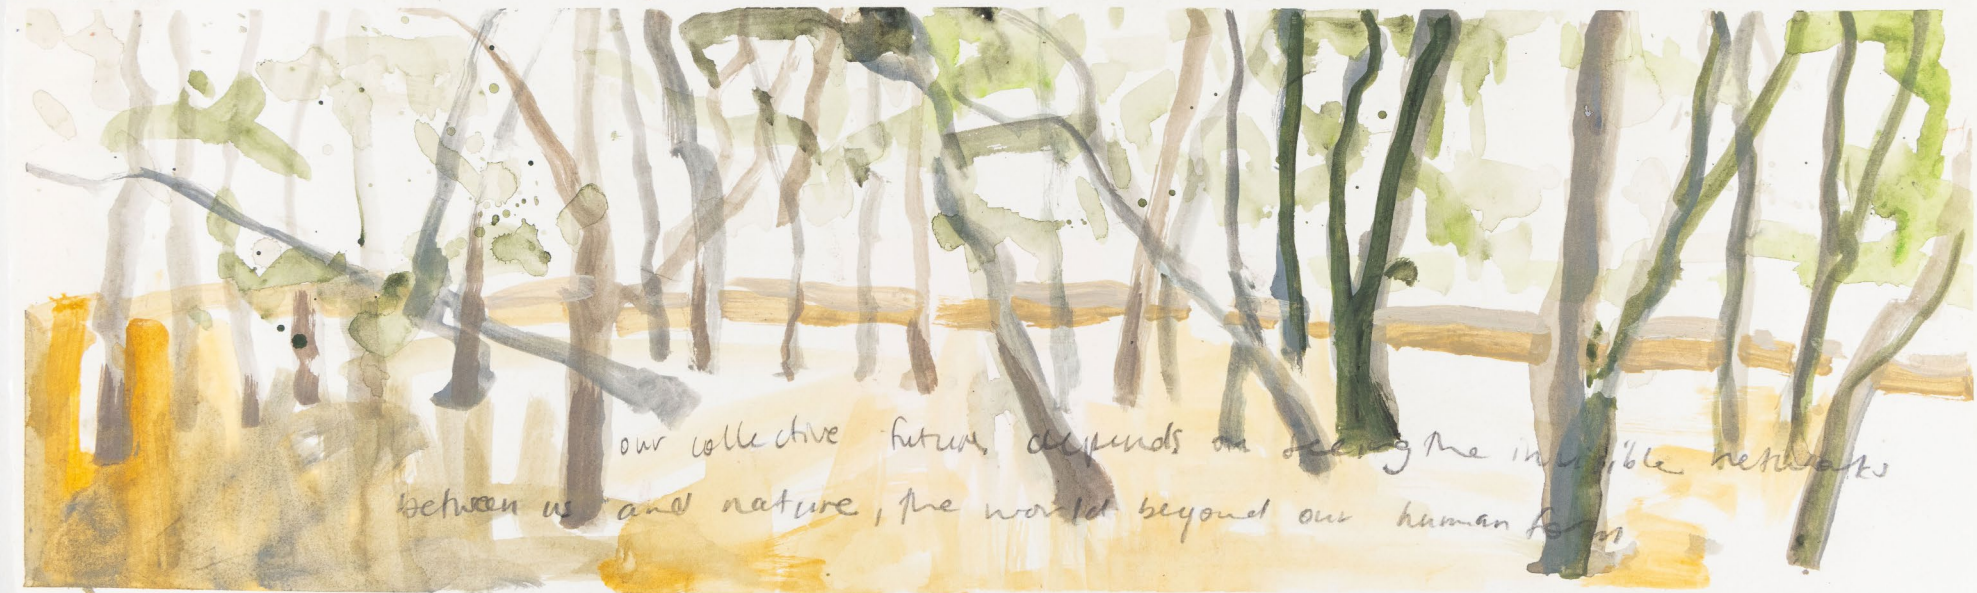 our collective future depends on seeing the invisible networks
between us and nature, the world beyond our human form